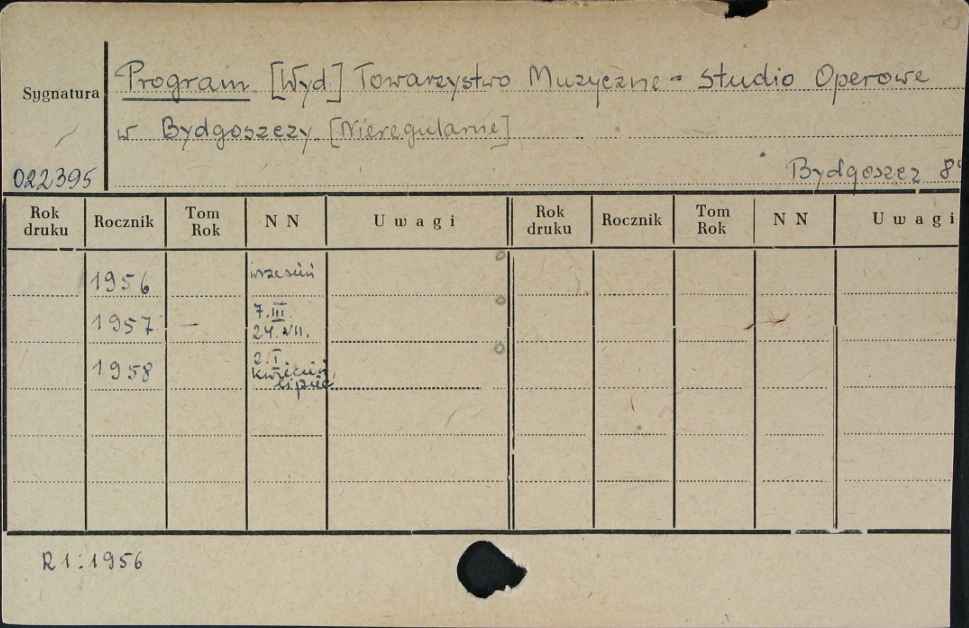 Sygnatura
Program [Wyd.] Towarzystwo Muzyczne - Studio Operowe
w Bydgoszczy. [Nieregularnie]
022395
Bydgoszcz 8°
Rok druku Rocznik Tom Rok N N Uwagi Rok druku Rocznik Tom Rok N N Uwagi
1956 wrzesień
1957 — 7.III.
24.VII.
1958 2.I.
kwiecień,
lipiec
R 1:1956